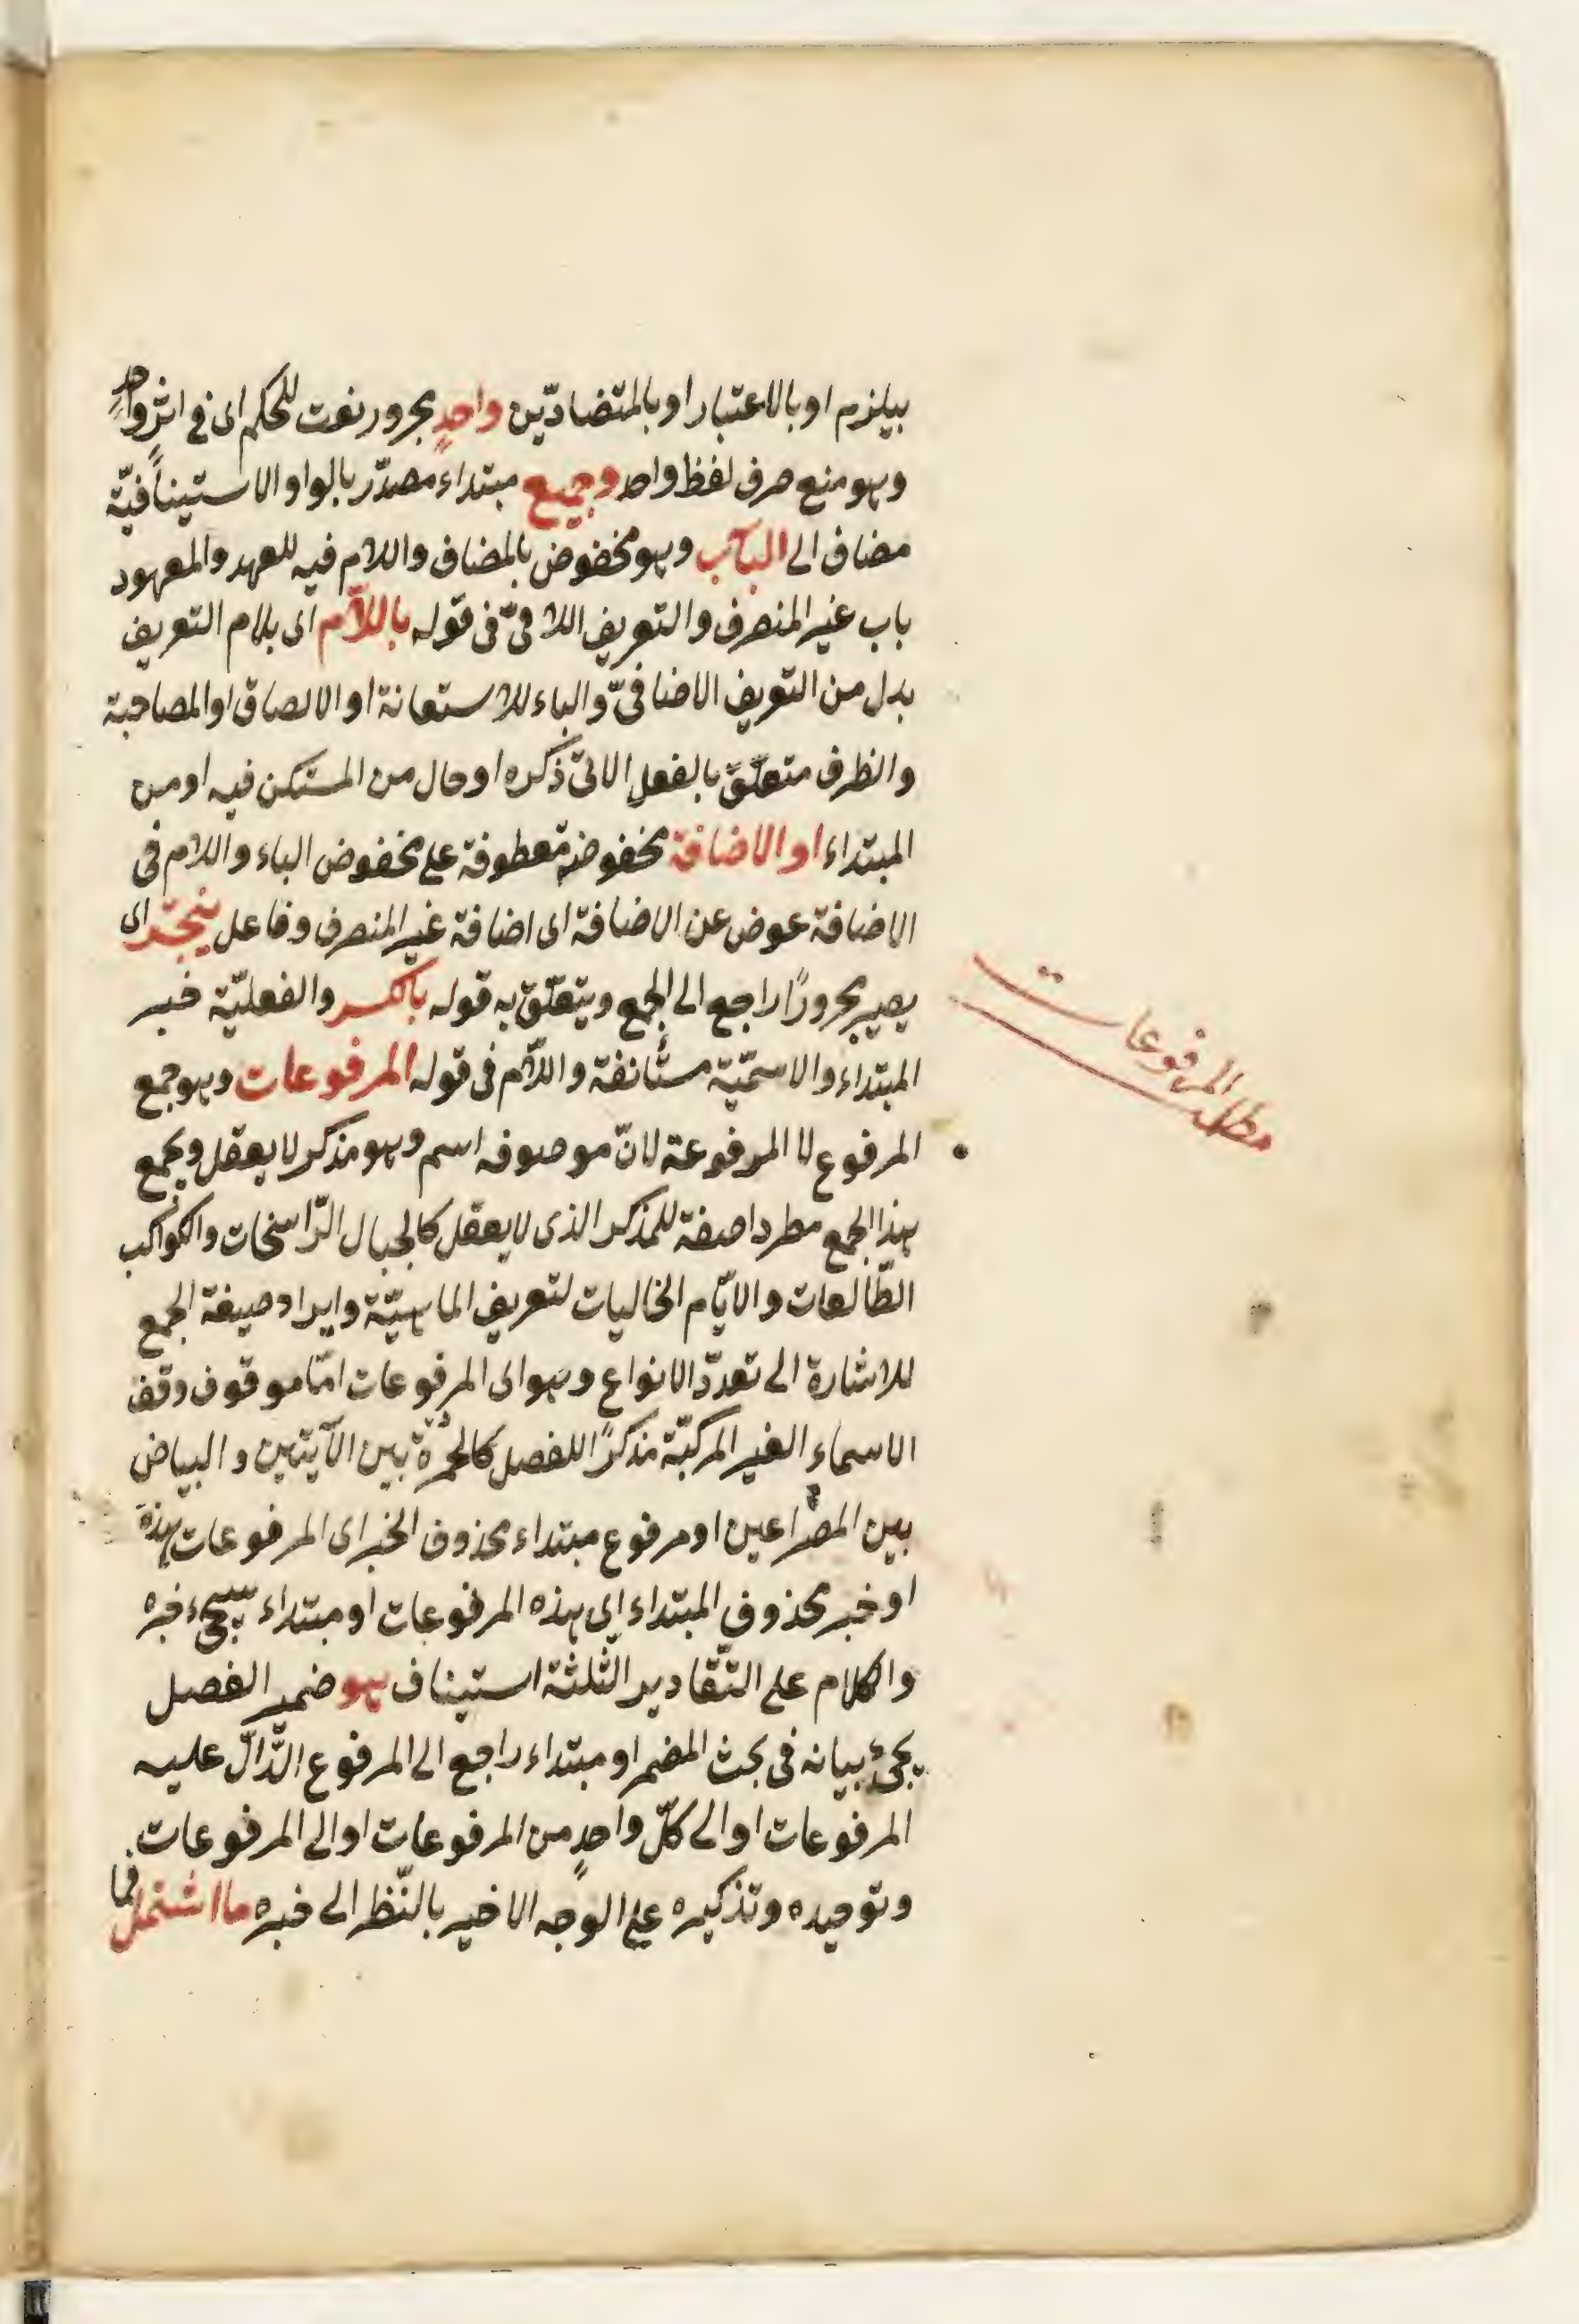 بيلزم او بالاعتبار او بالمتضادّين واحدٍ مجرور نعت للحكم اى فى اثرٍ واحدٍ
وهو منع صرف لفظ واحد وجميع مبتداء مصدّر بالواو الاستينافيّة
مضاف الى الباب وهو مخفوض بالمضاف واللام فيه للعهد والمعهود
باب غير المنصرف والتعريف اللافىّ فى قوله باللّام اى بلام التعريف
بدل من التعريف الاضافىّ والباء للاستعانة او الالصاق او المصاحبة
والظرف متعلّقٌ بالفعل الاتى ذكره او حال من المستكن فيه او من
المبتداء او الاضافة مخفوضة معطوفة على مخفوض الباء واللام فى
الاضافة عوض عن الاضافة اى اضافة غير المنصرف وفاعل ينجرّ اى
يصير مجرورًا راجع الى الجمع ويتعلّق به قوله بالكسر والفعليّة خبر
المبتداء والاسميّة مستأنفة واللام فى قوله المرفوعات وهو جمع
المرفوع لا المرفوعة لانّ موصوفه اسم وهو مذكر لا يعقل ويجمع
هذا الجمع مطردا صفة للمذكر الذى لا يعقل كالجبال الرّاسخات والكواكب
الطّالعات والايّام الخاليات لتعريف الماهيّة وايراد صيغة الجمع
للاشارة الى تعدّد الانواع وهو اى المرفوعات امّا موقوف وقف
الاسماء الغير المركبّة مذكرًا للفصل كالحمرة بين الآيتين والبياض
بين المصراعين او مرفوع مبتداء محذوف الخبر اى المرفوعات هذه
او خبر محذوف المبتداء اى هذه المرفوعات او مبتداء سيجىء خبره
والكلام على التّقادير الثّلثة استيناف هو ضمير الفصل
يجئ بيانه فى بحث المضمر او مبتداء راجع الى المرفوع الدّالّ عليه
المرفوعات او الى كلّ واحدٍ من المرفوعات او الى المرفوعات
وتوحيده وتذكيره على الوجه الاخير بالنّظر الى خبره ما اشتمل فما
مطلب المرفوعات